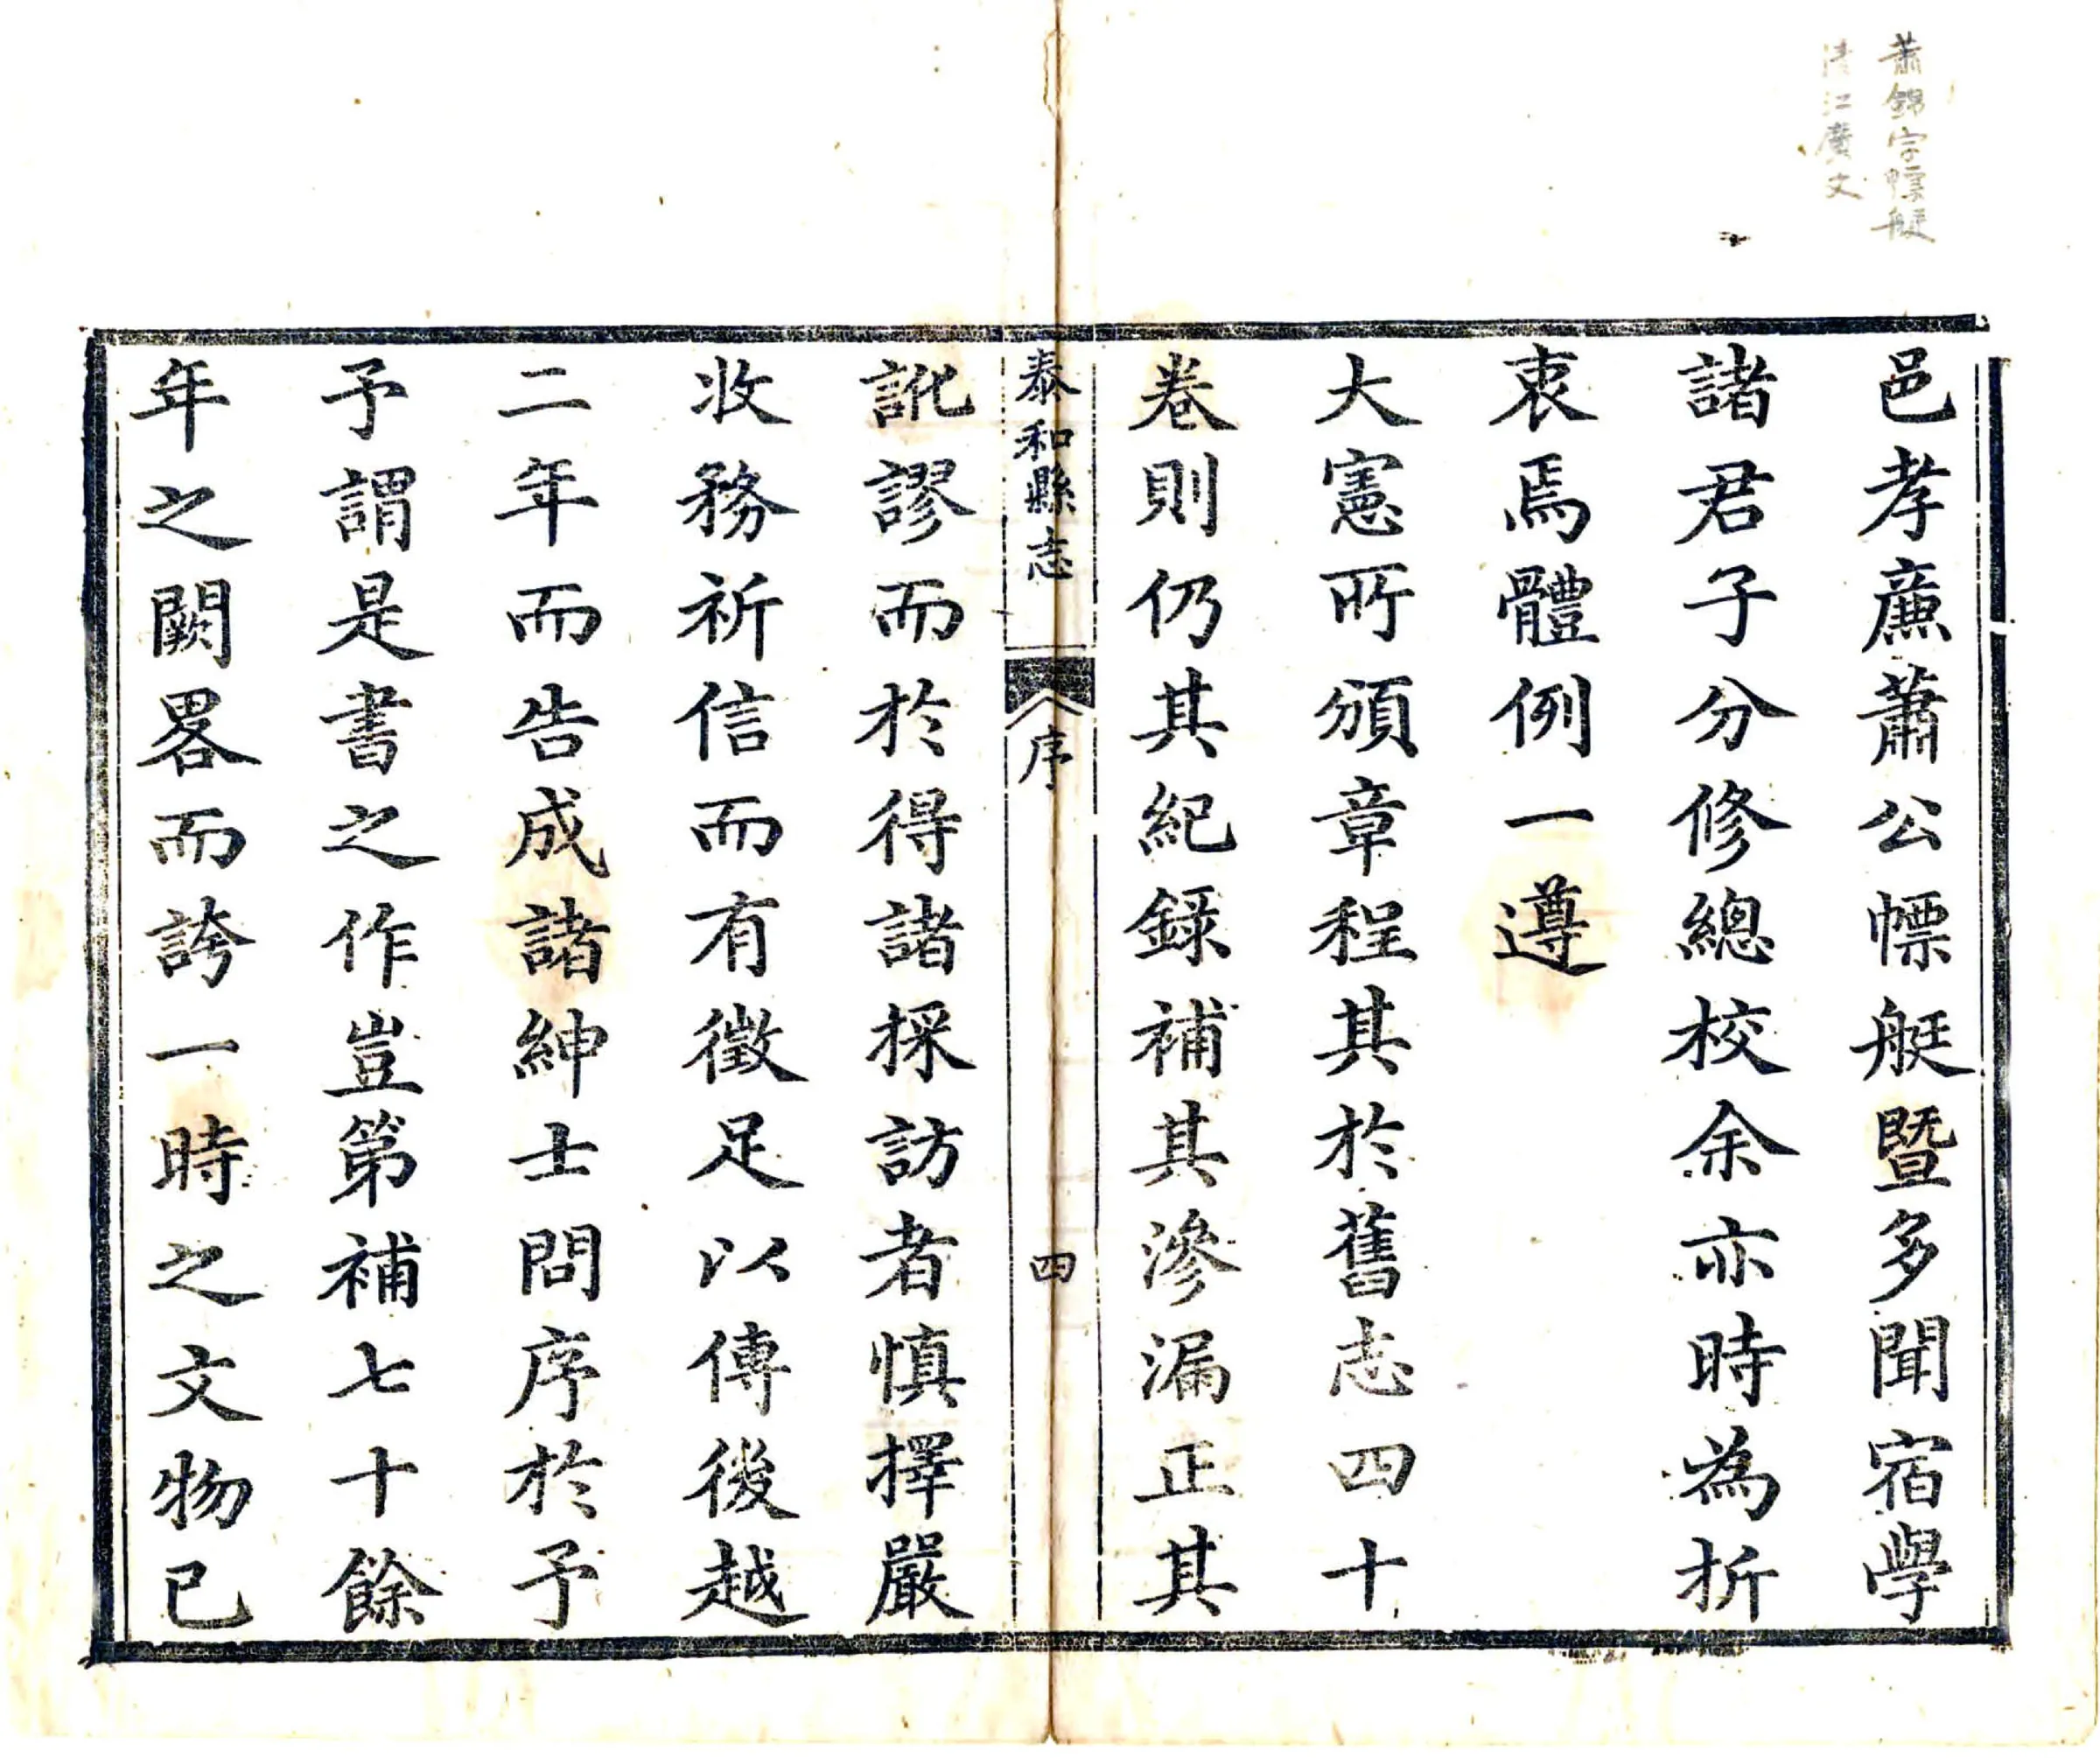 蕭錦字幖艇
清江廣文
邑孝廉蕭公幖艇暨多聞宿學
諸君子分修總校余亦時為折
衷焉體例一遵
大憲所頒章程其於舊志四十
卷則仍其紀録補其滲漏正其
泰和縣志
序
四
訛謬而於得諸採訪者慎擇嚴
收務祈信而有徵足以傳後越
二年而告成諸紳士問序於予
予謂是書之作豈第補七十餘
年之闕畧而誇一時之文物已